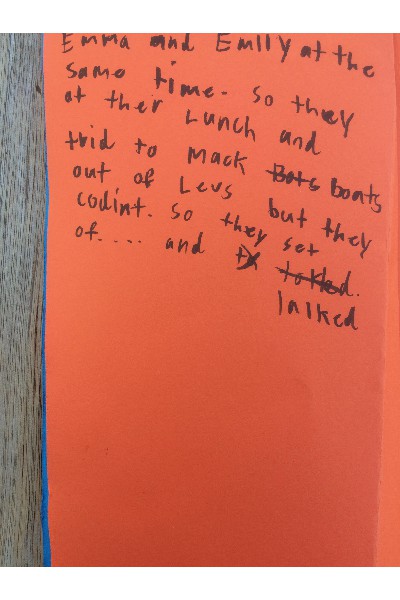 Emma and Emily at the
same time. so they
at ther Lunch and
trid to mack Bots boats
out of Levs but they
codint. so they set
of.... and tx talked.
lalked